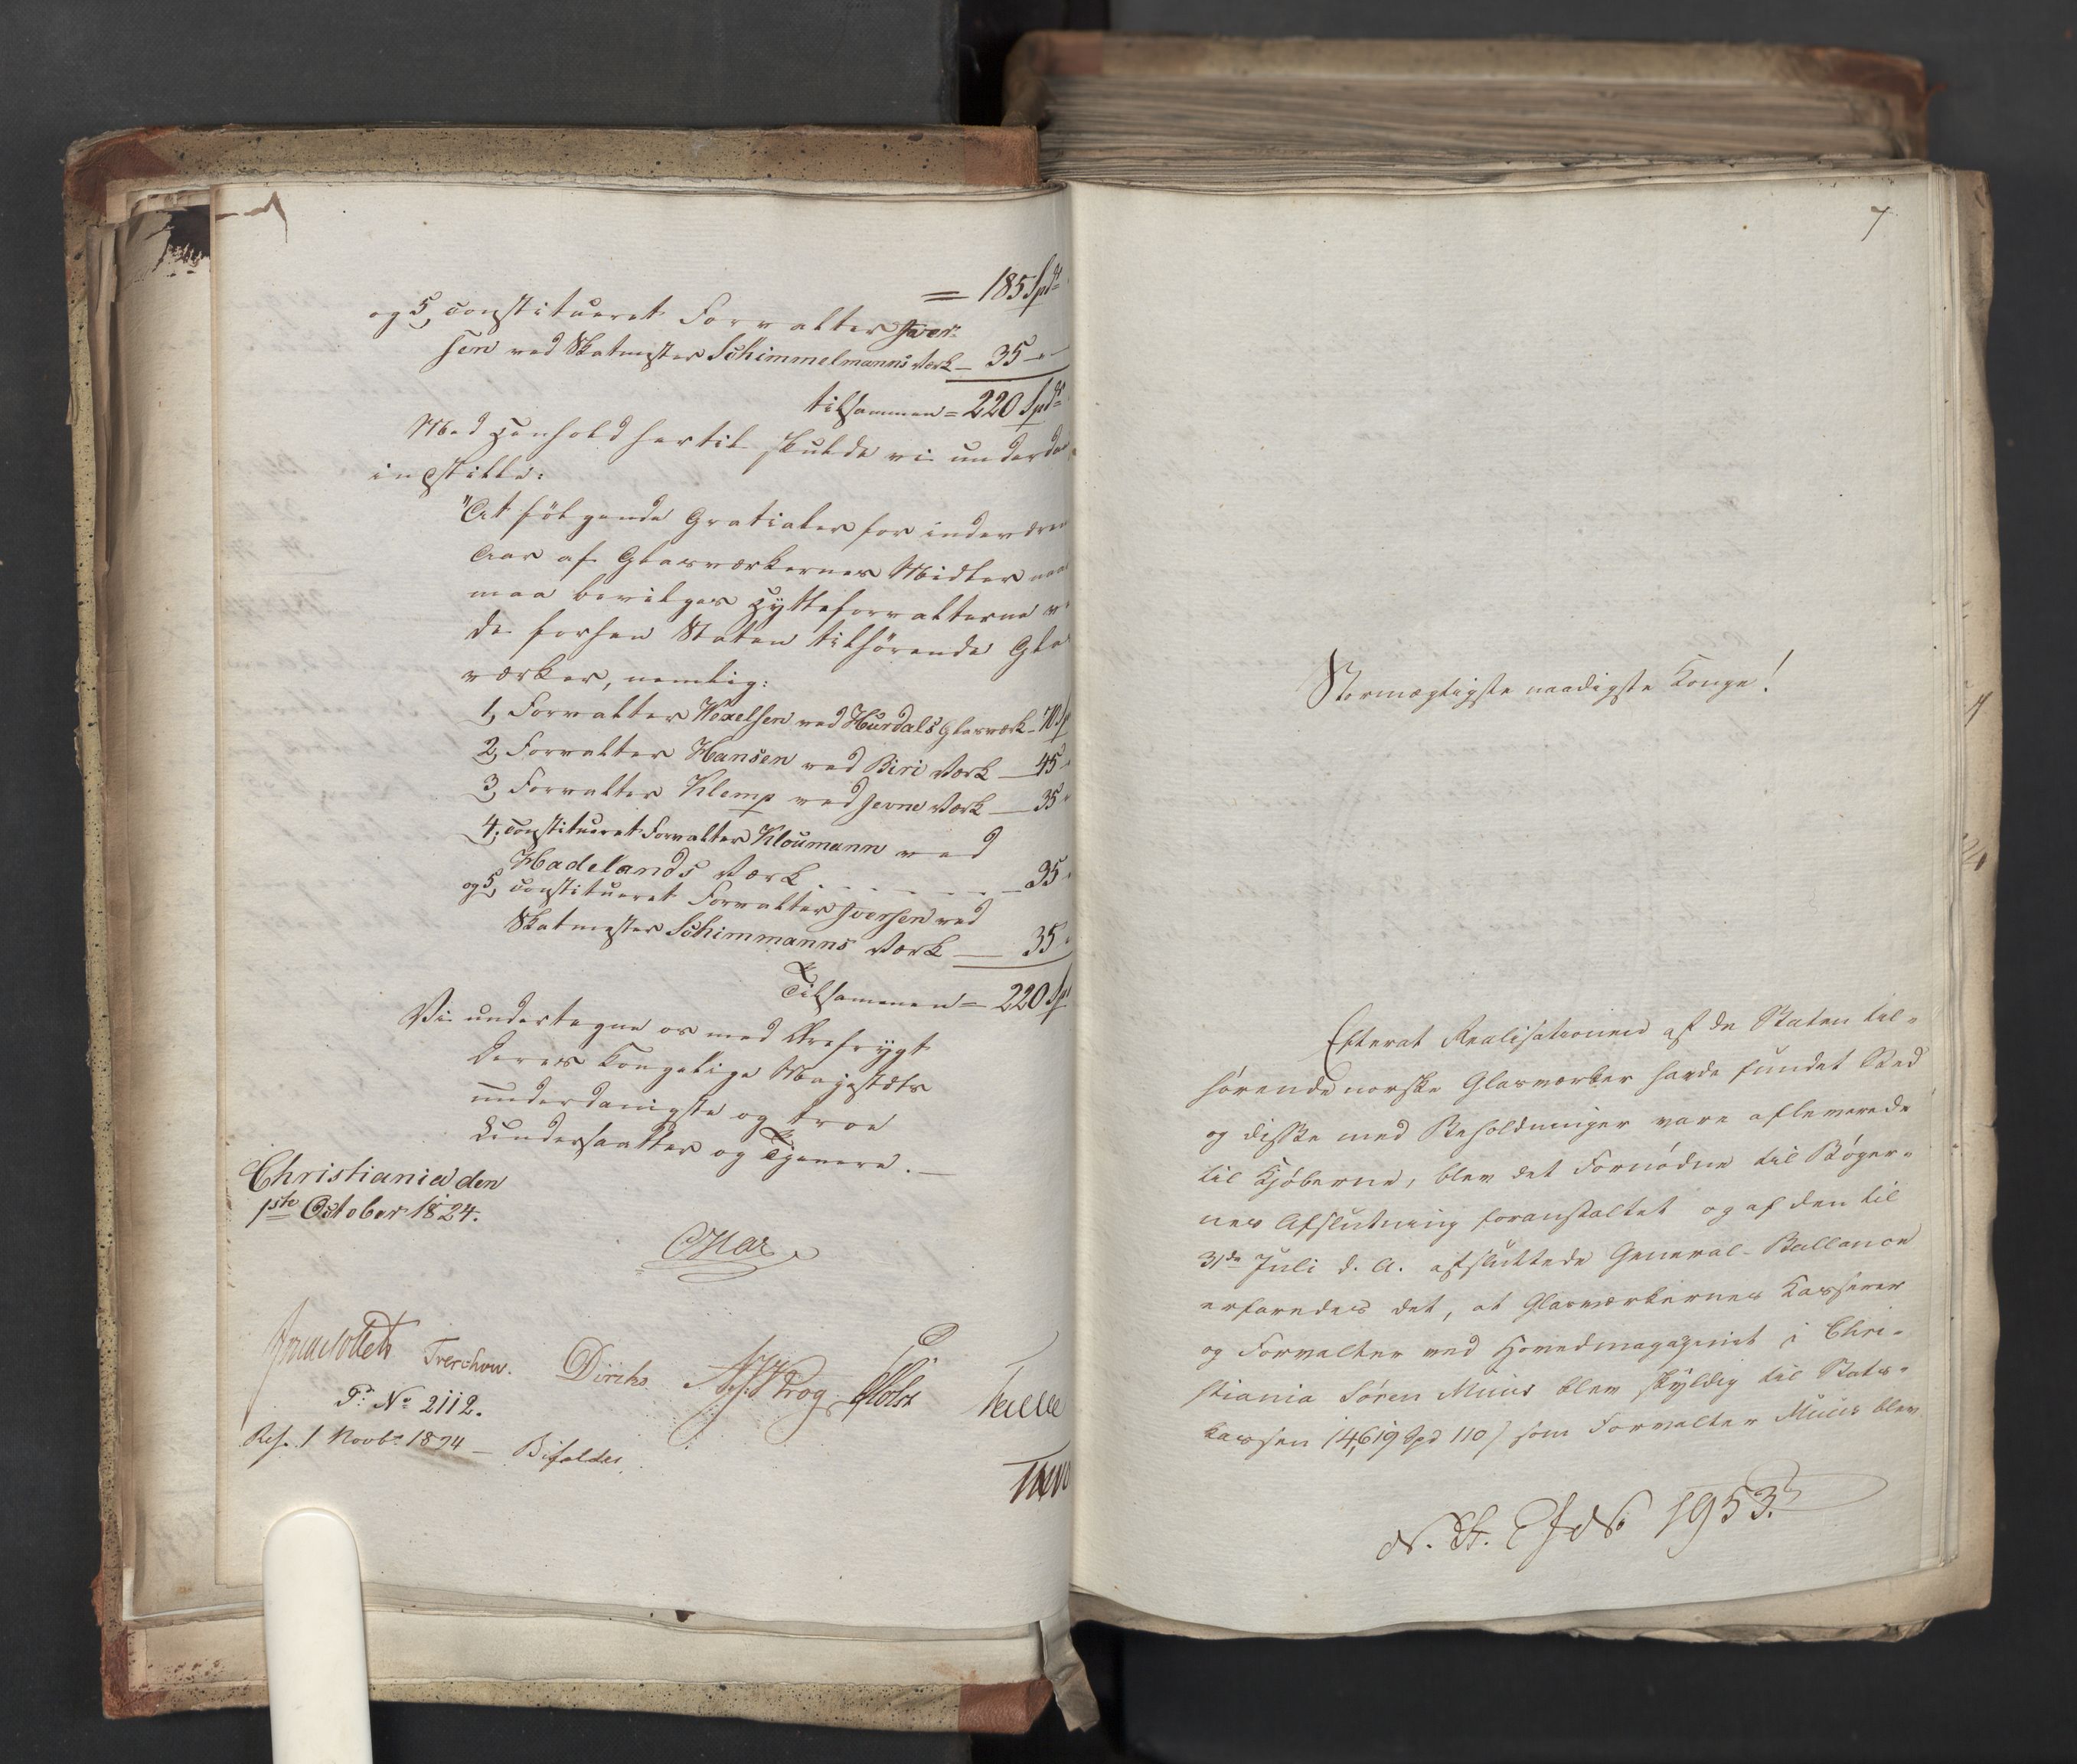 = 185 Spd
og 5, constitueret Forvalter Iver-
sen ved Skatmester Schimmelmanns Værk – 35 –
tilsammen = 220 Spdr
Med Henhold hertil skulde vi underda
indstille:
"At følgende Gratialer for indeværen
Aar af Glasværkernes Midler naa
maa bevilges Hytteforvalterne v
de forhen Staten tilhørende Gla
værker, nemlig:
1, Forvalter Wexelsen ved Hurdals Glasværk – 70 Sp
2, Forvalter Hansen ved Biri Værk – 45
3, Forvalter Klemp ved Jevne Værk – 35
4, constitueret Forvalter Kloumann ved
Hadelands Værk – 35
og 5, constitueret Forvalter Iversen ved
Skatmester Schimmanns Værk – 35
Tilsammen = 220 Sp
Vi undertegne os med Ærefrygt
Deres Kongelige Majestæts
underdanigste og troe
Undersaatter og Tjenere. –
Christiania den
1ste October 1824.
Treschow. Diriks. Krog Holst
Pr. No 2112.
Res. 1 Novbr 1824 – Bifaldes.
7
Stormægtigste naadigste Konge!
Efterat Realisationen af de Staten til-
hørende norske Glasværker havde fundet Sted
og disse med Beholdninger vare afleverede
til Kjøberne, blev det Fornødne til Bøger-
nes Afslutning foranstaltet og af den til
31de Juli d. A. afsluttede General-Ballance
erfaredes det, at Glasværkernes Kasserer
og Forvalter ved Hovedmagazinet i Chri-
stiania Søren Muus blev skyldig til Stats-
kassen 14,619 Spd 110 ſ som Forvalter Muus blev
1953.